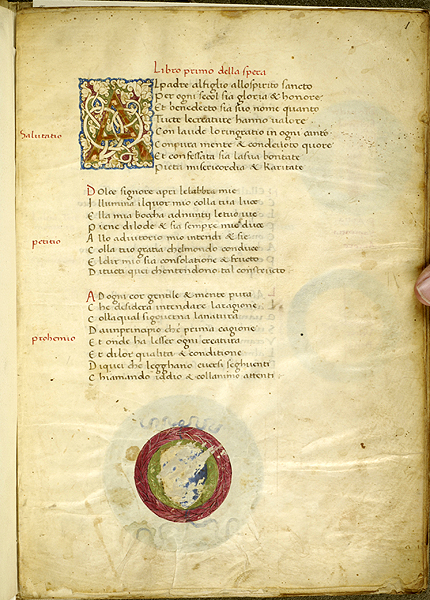 Libro primo della spera
Salutatio
Al padre al figlio allo spirito sancto
Per ogni secol sia gloria & honore
Et benedecto sia suo nome quanto
Tucte le creature hanno valore
Con laude lo ringratio in ogni canto
Con pura mente & con devoto quore
Et confessata sia la sua bontate
Pieta misericordia & karitate
petitio
Dolce signore apri le labbra mie
Illumina il quor mio colla tua luce
Ella mia boccha adnunti le tuo vie
Piene di lode & sia sempre mio duce
Allo adiutorio mio intendi & sie
Colla tuo gratia chel mondo conduce
El dir mio sia consolatione & fructo
Di tucti quei chentendono tal constructo
prohemio
Ad ogni cor gentile & mente pura
Che desidera intendare la ragione
Colla qual si governa la natura
Da un principio che prima cagione
Et onde ha lesser ogni creatura
Et di lor qualita & conditione
Di quei che legghano e versi seghuenti
Chiamando iddio & collanimo attenti